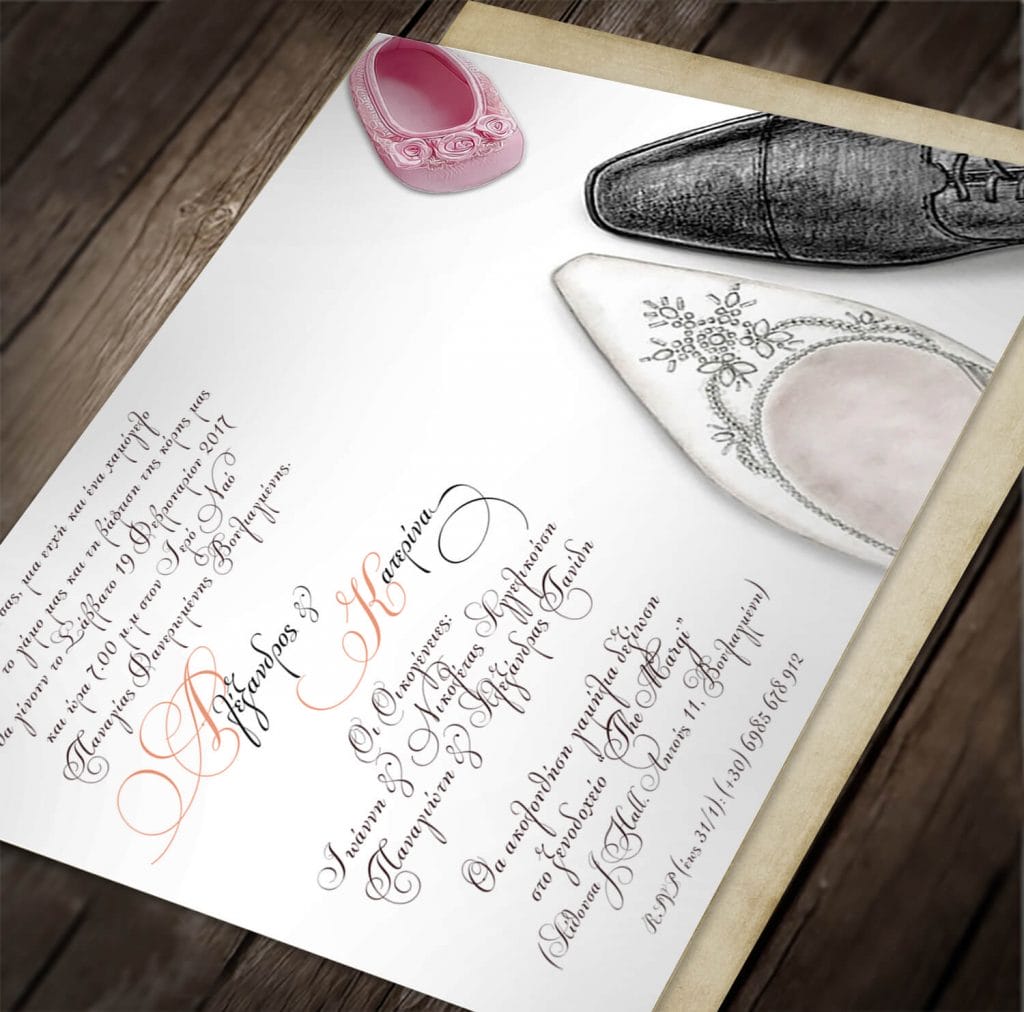 σας, μια ευχή και ένα χαμόγελο
το γάμο μας και τη βάφτιση της κόρης μας
θα γίνουν το Σάββατο 19 Φεβρουαρίου 2017
και ώρα 7.00 μ.μ. στον Ιερό Ναό
Παναγίας Φανερωμένης Βουλιαγμένης.
Αλέξανδρος & Κατερίνα
Οι Οικογένειες:
Ιωάννη & Νικολέτας Αγγελικούση
Παναγιώτη & Αλεξάνδρας Γανίδη
Θα ακολουθήσει γαμήλια δεξίωση
στο ξενοδοχείο "The Margi"
(Αίθουσα J Hall. Λητούς 11, Βουλιαγμένη)
R.S.V.P (έως 31/1): (+30) 6985 678 912